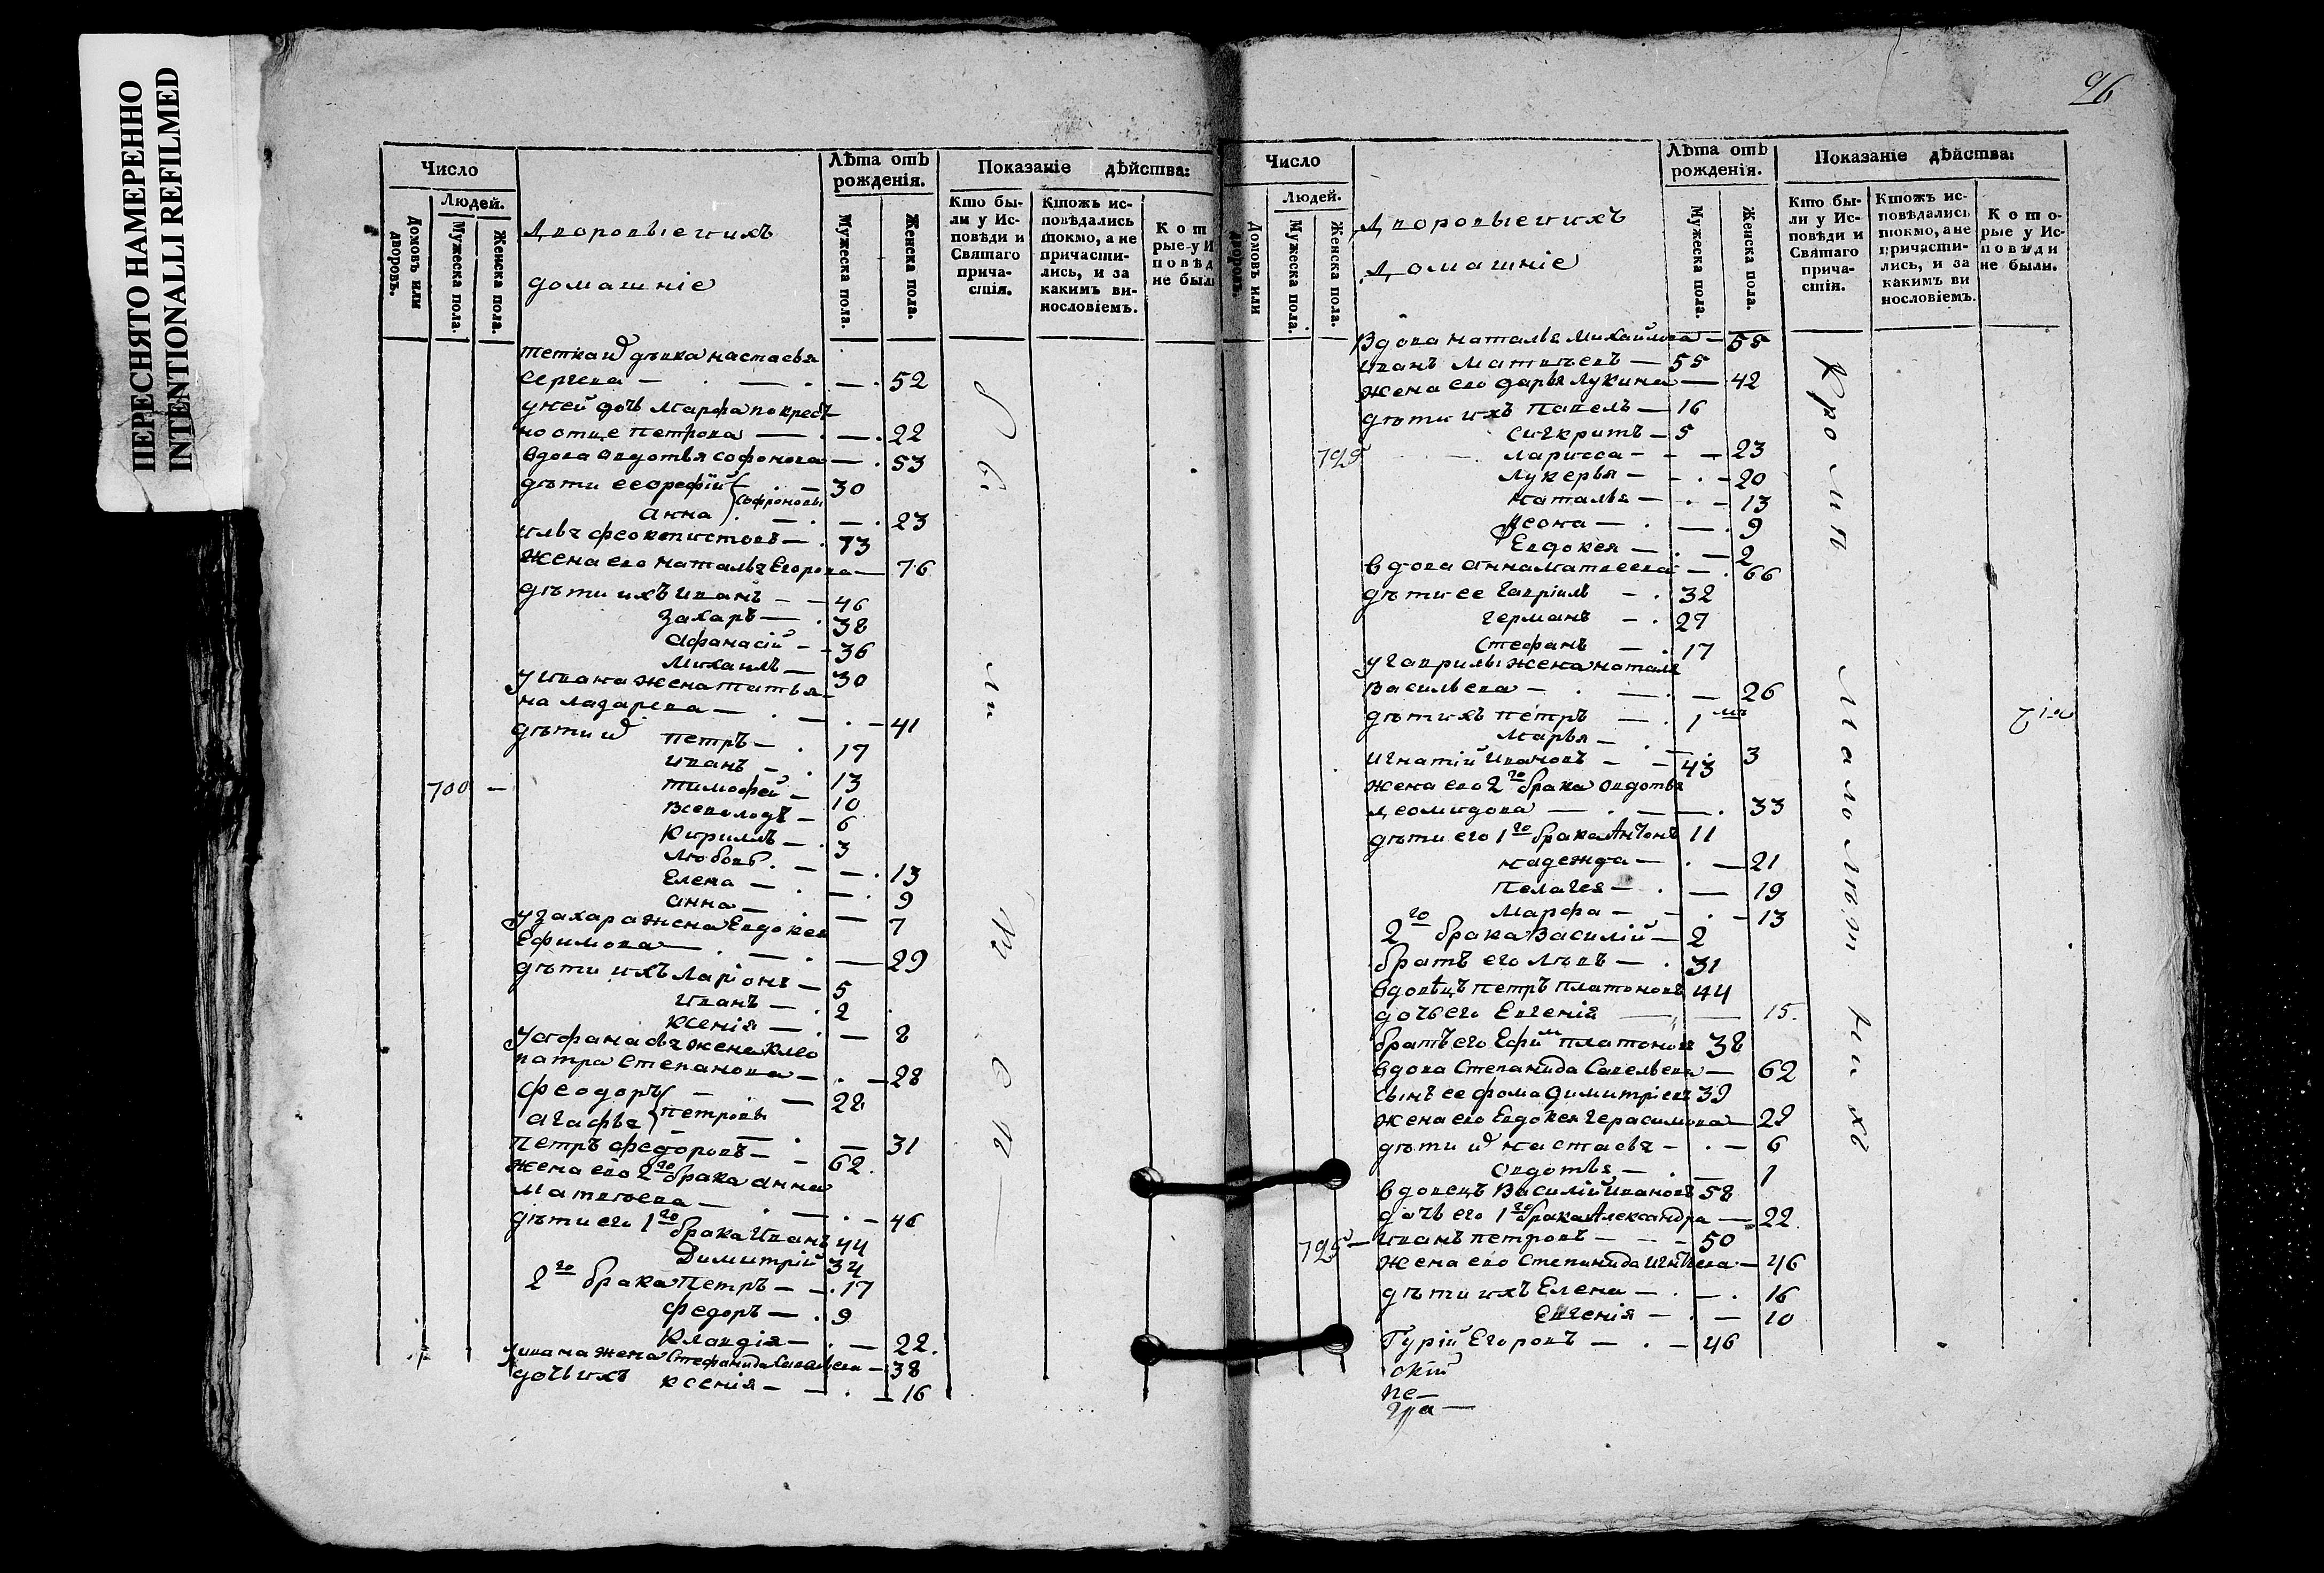 ПЕРЕСНЯТО НАМЕРЕННО
INTENTIONALLI REFILMED
Число
Людей.
Домовъ или дворовъ.
Мужеска пола.
Женска пола.
Дворовые ихъ
домашніе
Лѣта отъ
рожденія.
Мужеска пола.
Женска пола.
Показаніе дѣйства:
Кто бы-
ли у Ис-
повѣди и
Святаго
прича-
стія.
Ктожъ ис-
повѣдались
токмо, а не
причасти-
лись, и за
какимъ ви-
нословіемъ.
К о т
рые у И
п о в ѣ д
не был
тетка дѣвка настасья
сергеева — 52
у ней дочь марфа по крест
но отце петрова — 22
вдова авдотья софонова — 53
дѣти ее орефій — 30
Софроновы
анна — 23
илья феоктистовъ — 73
жена ево наталья Егорова — 76
дѣти ихъ иванъ — 46
захаръ — 38
афанасій — 36
михаилъ — 30
у ивана жена татья-
на лазарева — 41
дѣти петръ — 17
иванъ — 13
700 —
тимофей — 10
всеволодъ — 6
кирилъ — 3
любовь — 13
Елена — 9
анна — 7
у захара жена Евдокея
Ефимова — 29
дѣти ихъ ларіонъ — 5
иванъ — 2
ксенія — 8
у афанасья жена клео
патра степанова — 28
феодоръ — 28
петровы
агафья — 31
петръ федоровъ — 62
жена ево 2го брака анна
матвѣева — 46
дѣти его 1го брака иванъ 44
Димитрій 34
2го брака петръ — 17
федоръ — 9
клавдія — 22
у ивана жена стефанида савельева — 38
дочь ихъ ксенія — 16
96
Число
Людей.
Домовъ или дворовъ.
Мужеска пола.
Женска пола.
Дворовые ихъ
домашніе
Лѣта отъ
рожденія.
Мужеска пола.
Женска пола.
Показаніе дѣйства:
Кто бы-
ли у Ис-
повѣди и
Святаго
прича-
стія.
Ктожъ ис-
повѣдались
токмо, а не
причасти-
лись, и за
какимъ ви
нословіемъ.
К о т о-
рые у Ис-
п о в ѣ д и
не были.
вдова наталья михайлова — 55
иванъ матвѣевъ — 55
жена ево дарья лукина — 42
дѣти ихъ павелъ — 16
сигкритъ — 5
795
ларисса — 23
лукерья — 20
наталья — 13
феона — 9
Евдокея — 2
вдова анна матвеева — 66
дѣти ее гавріилъ — 32
германъ — 27
стефанъ — 17
у гаврилы жена наталя
васильева — 26
дѣти ихъ петръ — 1 мъ
марья — 3
игнатій ивановъ — 43
жена ево 2го брака авдотья
леомидова — 33
дѣти его 1го брака Антонъ 11
надежда — 21
пелагея — 19
марфа — 13
2го брака василій — 2
братъ его львъ — 31
вдовѣцъ петръ платоновъ 44
дочь его Евгенія — 15
братъ его Ефимъ платоновъ 38
вдова степанида савельева — 62
сынъ ее фома димитріевъ 39
жена ево Евдокея герасимова — 22
дѣти настасья — 6
авдотья — 1
вдовецъ василій ивановъ 58
дочь его 1го брака Александра — 22
795 —
иванъ петровъ — 50
жена ево степанида — 46
дѣти ихъ Елена — 16
Евгенія — 10
гурій Егоровъ — 46
Кромѣ
малолѣтнихъ